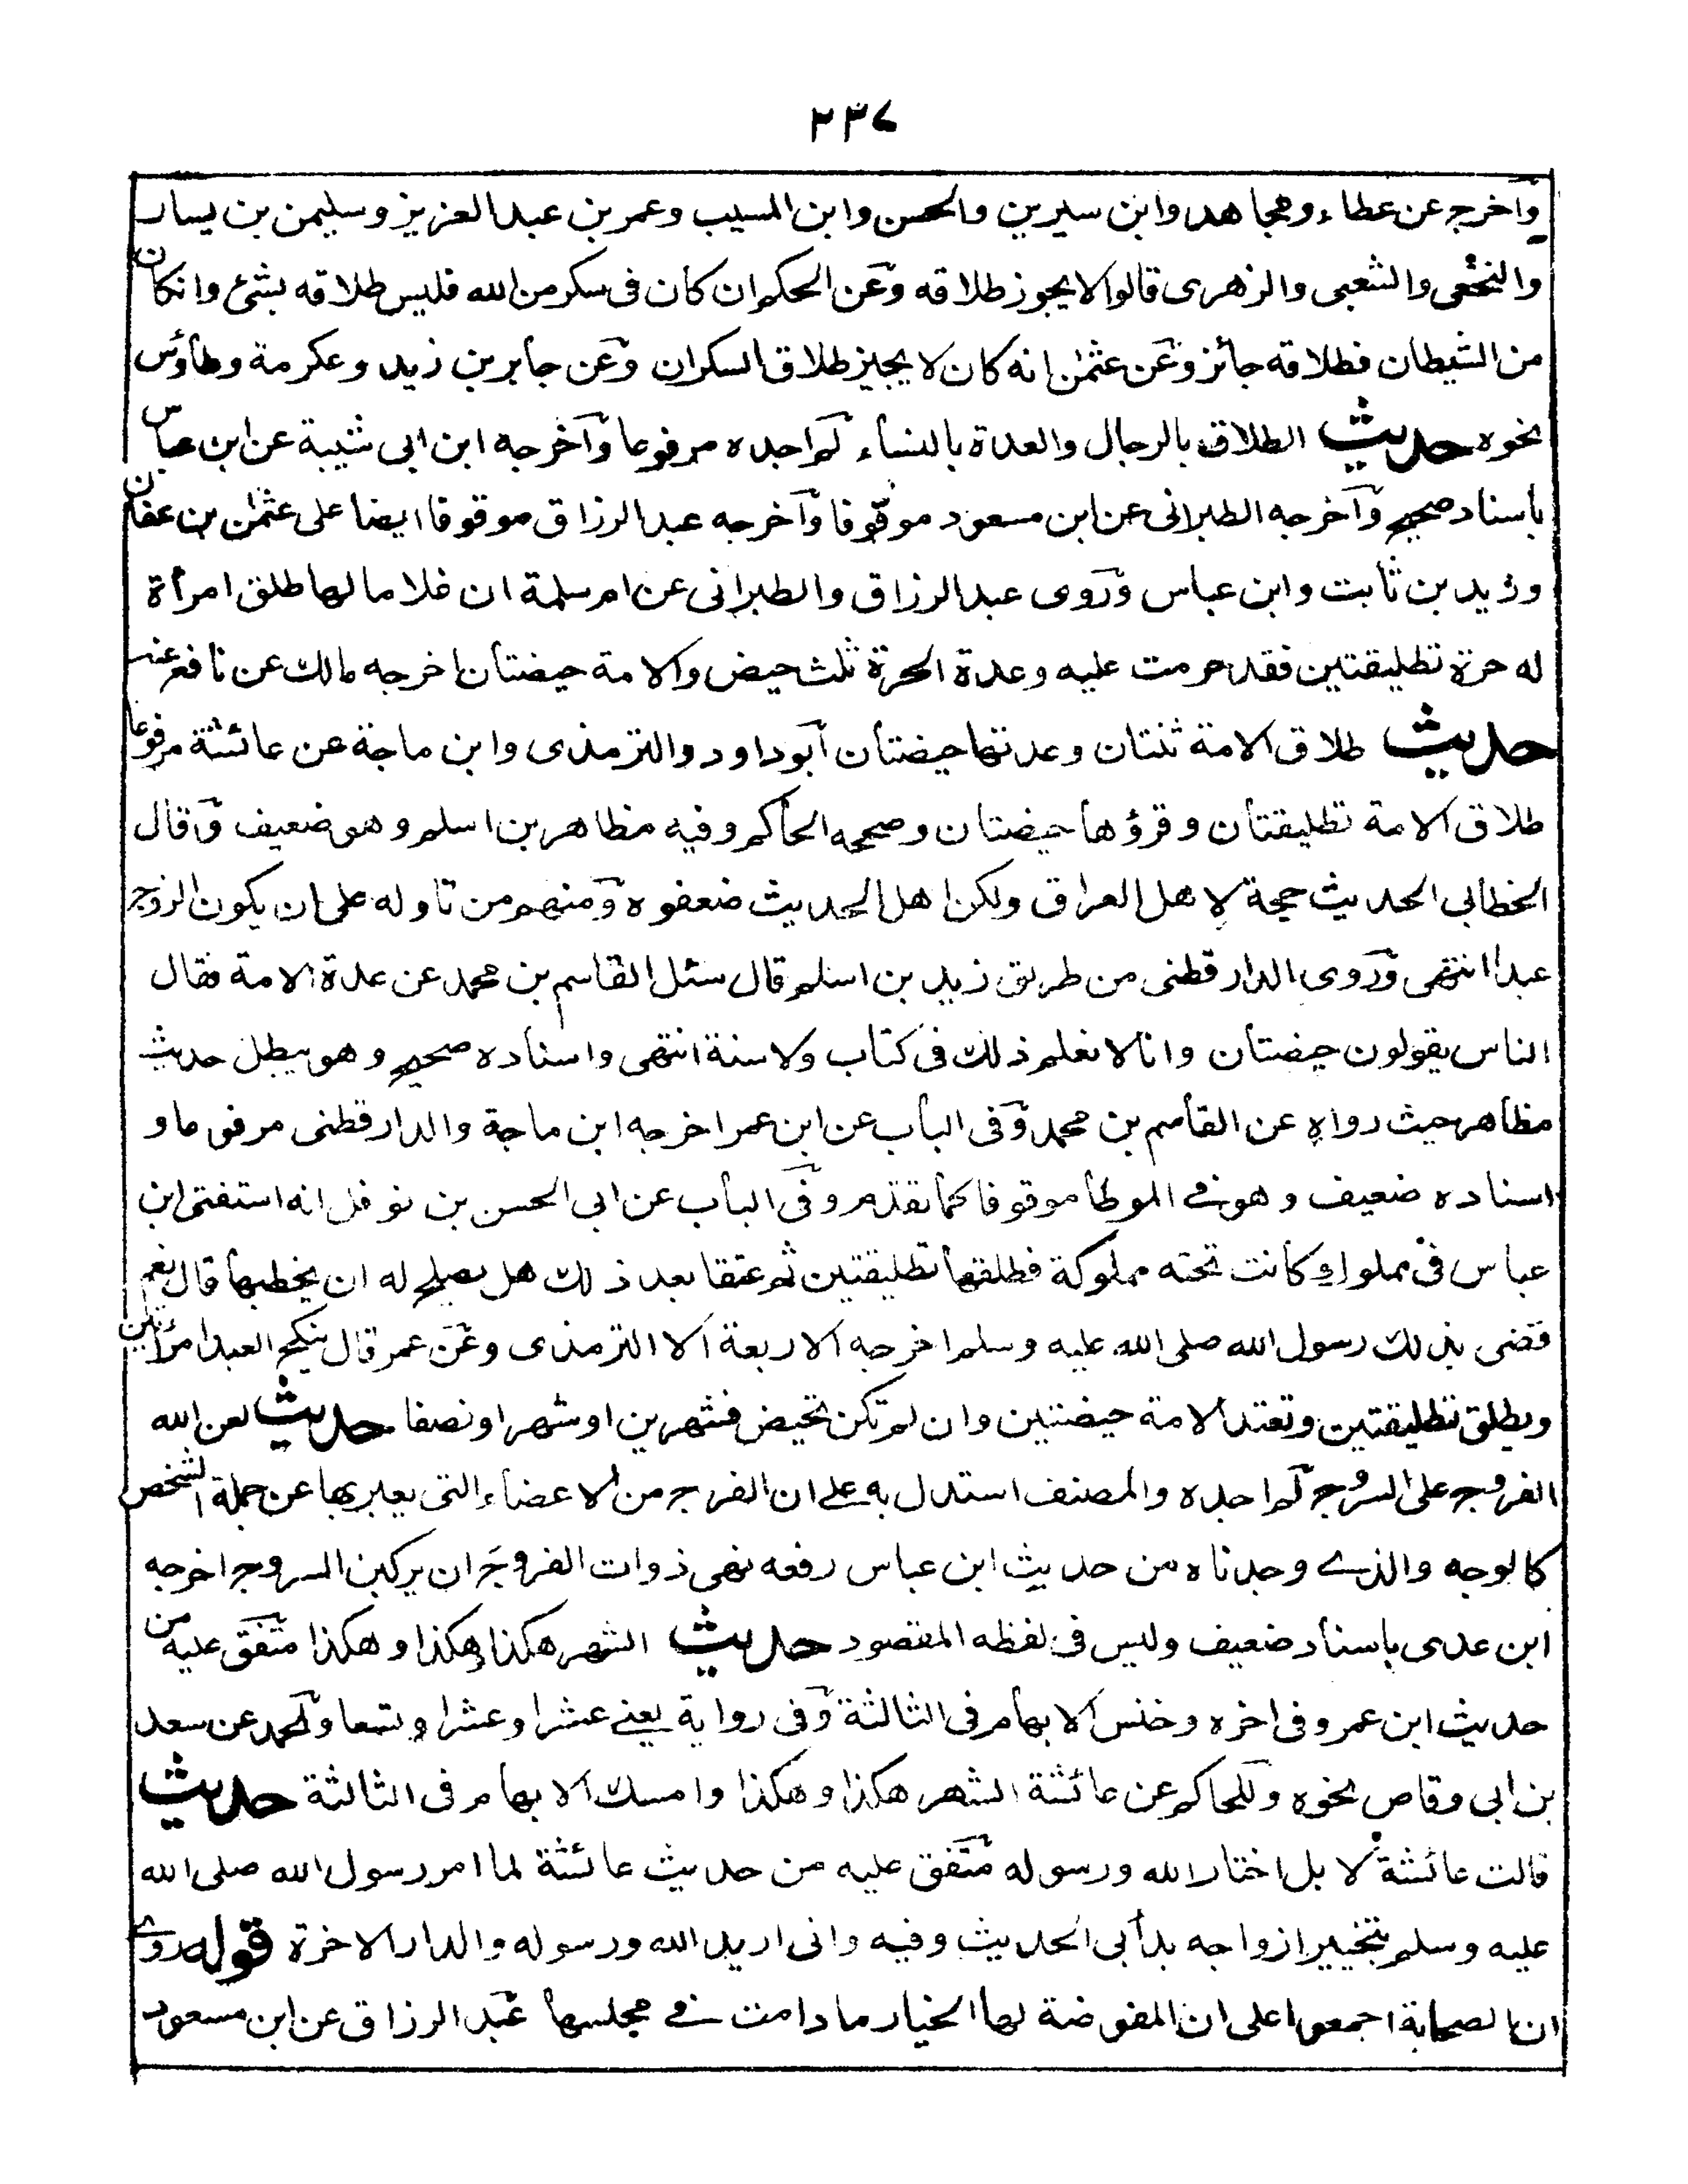 ٢٣٧
وآخرج عن عطاء ومجاهد وابن سيرين والحسن وابن المسيب وعمر بن عبد العزيز وسليمن بن يسار
والنخعى والشعبى والزهرى قالوا لا يجوز طلاقه وعن الحكم ان كان فى سكر من الله فليس طلاقه بشئ وانكان
من الشيطان فطلاقه جائز وعن عثمن انه كان لا يجيز طلاق السكران وعن جابر بن زيد وعكرمة وطاؤس
نحوه حديث الطلاق بالرجال والعدة بالنساء لم اجده مرفوعا وآخرجه ابن ابى شيبة عن ابن عباس
باسناد صحيح وآخرجه الطبرانى عن ابن مسعود موقوفا وآخرجه عبد الرزاق موقوفا ايضا على عثمن بن عفان
وزيد بن ثابت وابن عباس وروى عبد الرزاق والطبرانى عن ام سلمة ان غلاما لها طلق امرأة
له حرة تطليقتين فقد حرمت عليه وعدة الحرة ثلث حيض والامة حيضتان اخرجه مالك عن نافع عنه
حديث طلاق الامة ثنتان وعدتها حيضتان آبو داود والترمذى وابن ماجة عن عائشة مرفوعا
طلاق الامة تطليقتان وقرؤها حيضتان وصححه الحاكم وفيه مظاهر بن اسلم وهو ضعيف وقال
الخطابى الحديث حجة لاهل العراق ولكن اهل الحديث ضعفوه ومنهم من تاوله على ان يكون الزوج
عبدا انتهى وروى الدارقطنى من طريق زيد بن اسلم قال سئل القاسم بن محمد عن عدة الامة فقال
الناس يقولون حيضتان وانا لا نعلم ذلك فى كتاب ولا سنة انتهى واسناده صحيح وهو يبطل حديث
مظاهر حيث رواه عن القاسم بن محمد وفى الباب عن ابن عمر اخرجه ابن ماجة والدارقطنى مرفوعا و
اسناده ضعيف وهو فے الموطا موقوفا كما تقدم وفى الباب عن ابى الحسن بن نوفل انه استفتى ابن
عباس فى مملوك كانت تحته مملوكة فطلقها تطليقتين ثم عتقا بعد ذلك هل يصلح له ان يخطبها قال نعم
قضى بذلك رسول الله صلى الله عليه وسلم اخرجه الاربعة الا الترمذى وعن عمر قال ينكح العبد امرأتين
ويطلق تطليقتين وتعتد الامة حيضتين وان لم تكن تحيض فشهرين او شهرا ونصفا حديث لعن الله
الفروج على السروج لم اجده والمصنف استدل به علے ان الفرج من الاعضاء التى يعبر بها عن جملة الشخص
كالوجه والذے وجدناه من حديث ابن عباس رفعه نهى ذوات الفروج ان يركبن السروج اخرجه
ابن عدى باسناد ضعيف وليس فى لفظه المقصود حديث الشهر هكذا وهكذا وهكذا متفق عليه من
حديث ابن عمر وفى اخره وخنس الابهام فى الثالثة وفى رواية يعنے عشرا وعشرا وتسعا ولاحمد عن سعد
بن ابى وقاص نحوه وللحاكم عن عائشة الشهر هكذا وهكذا وامسك الابهام فى الثالثة حديث
قالت عائشة لا بل اختار الله ورسوله متفق عليه من حديث عائشة لما امر رسول الله صلى الله
عليه وسلم بتخيير ازواجه بدأ بى الحديث وفيه وانى اريد الله ورسوله والدار الاخرة قوله روے
ان الصحابة اجمعوا على ان المفوضة لها الخيار ما دامت فے مجلسها عبد الرزاق عن ابن مسعود